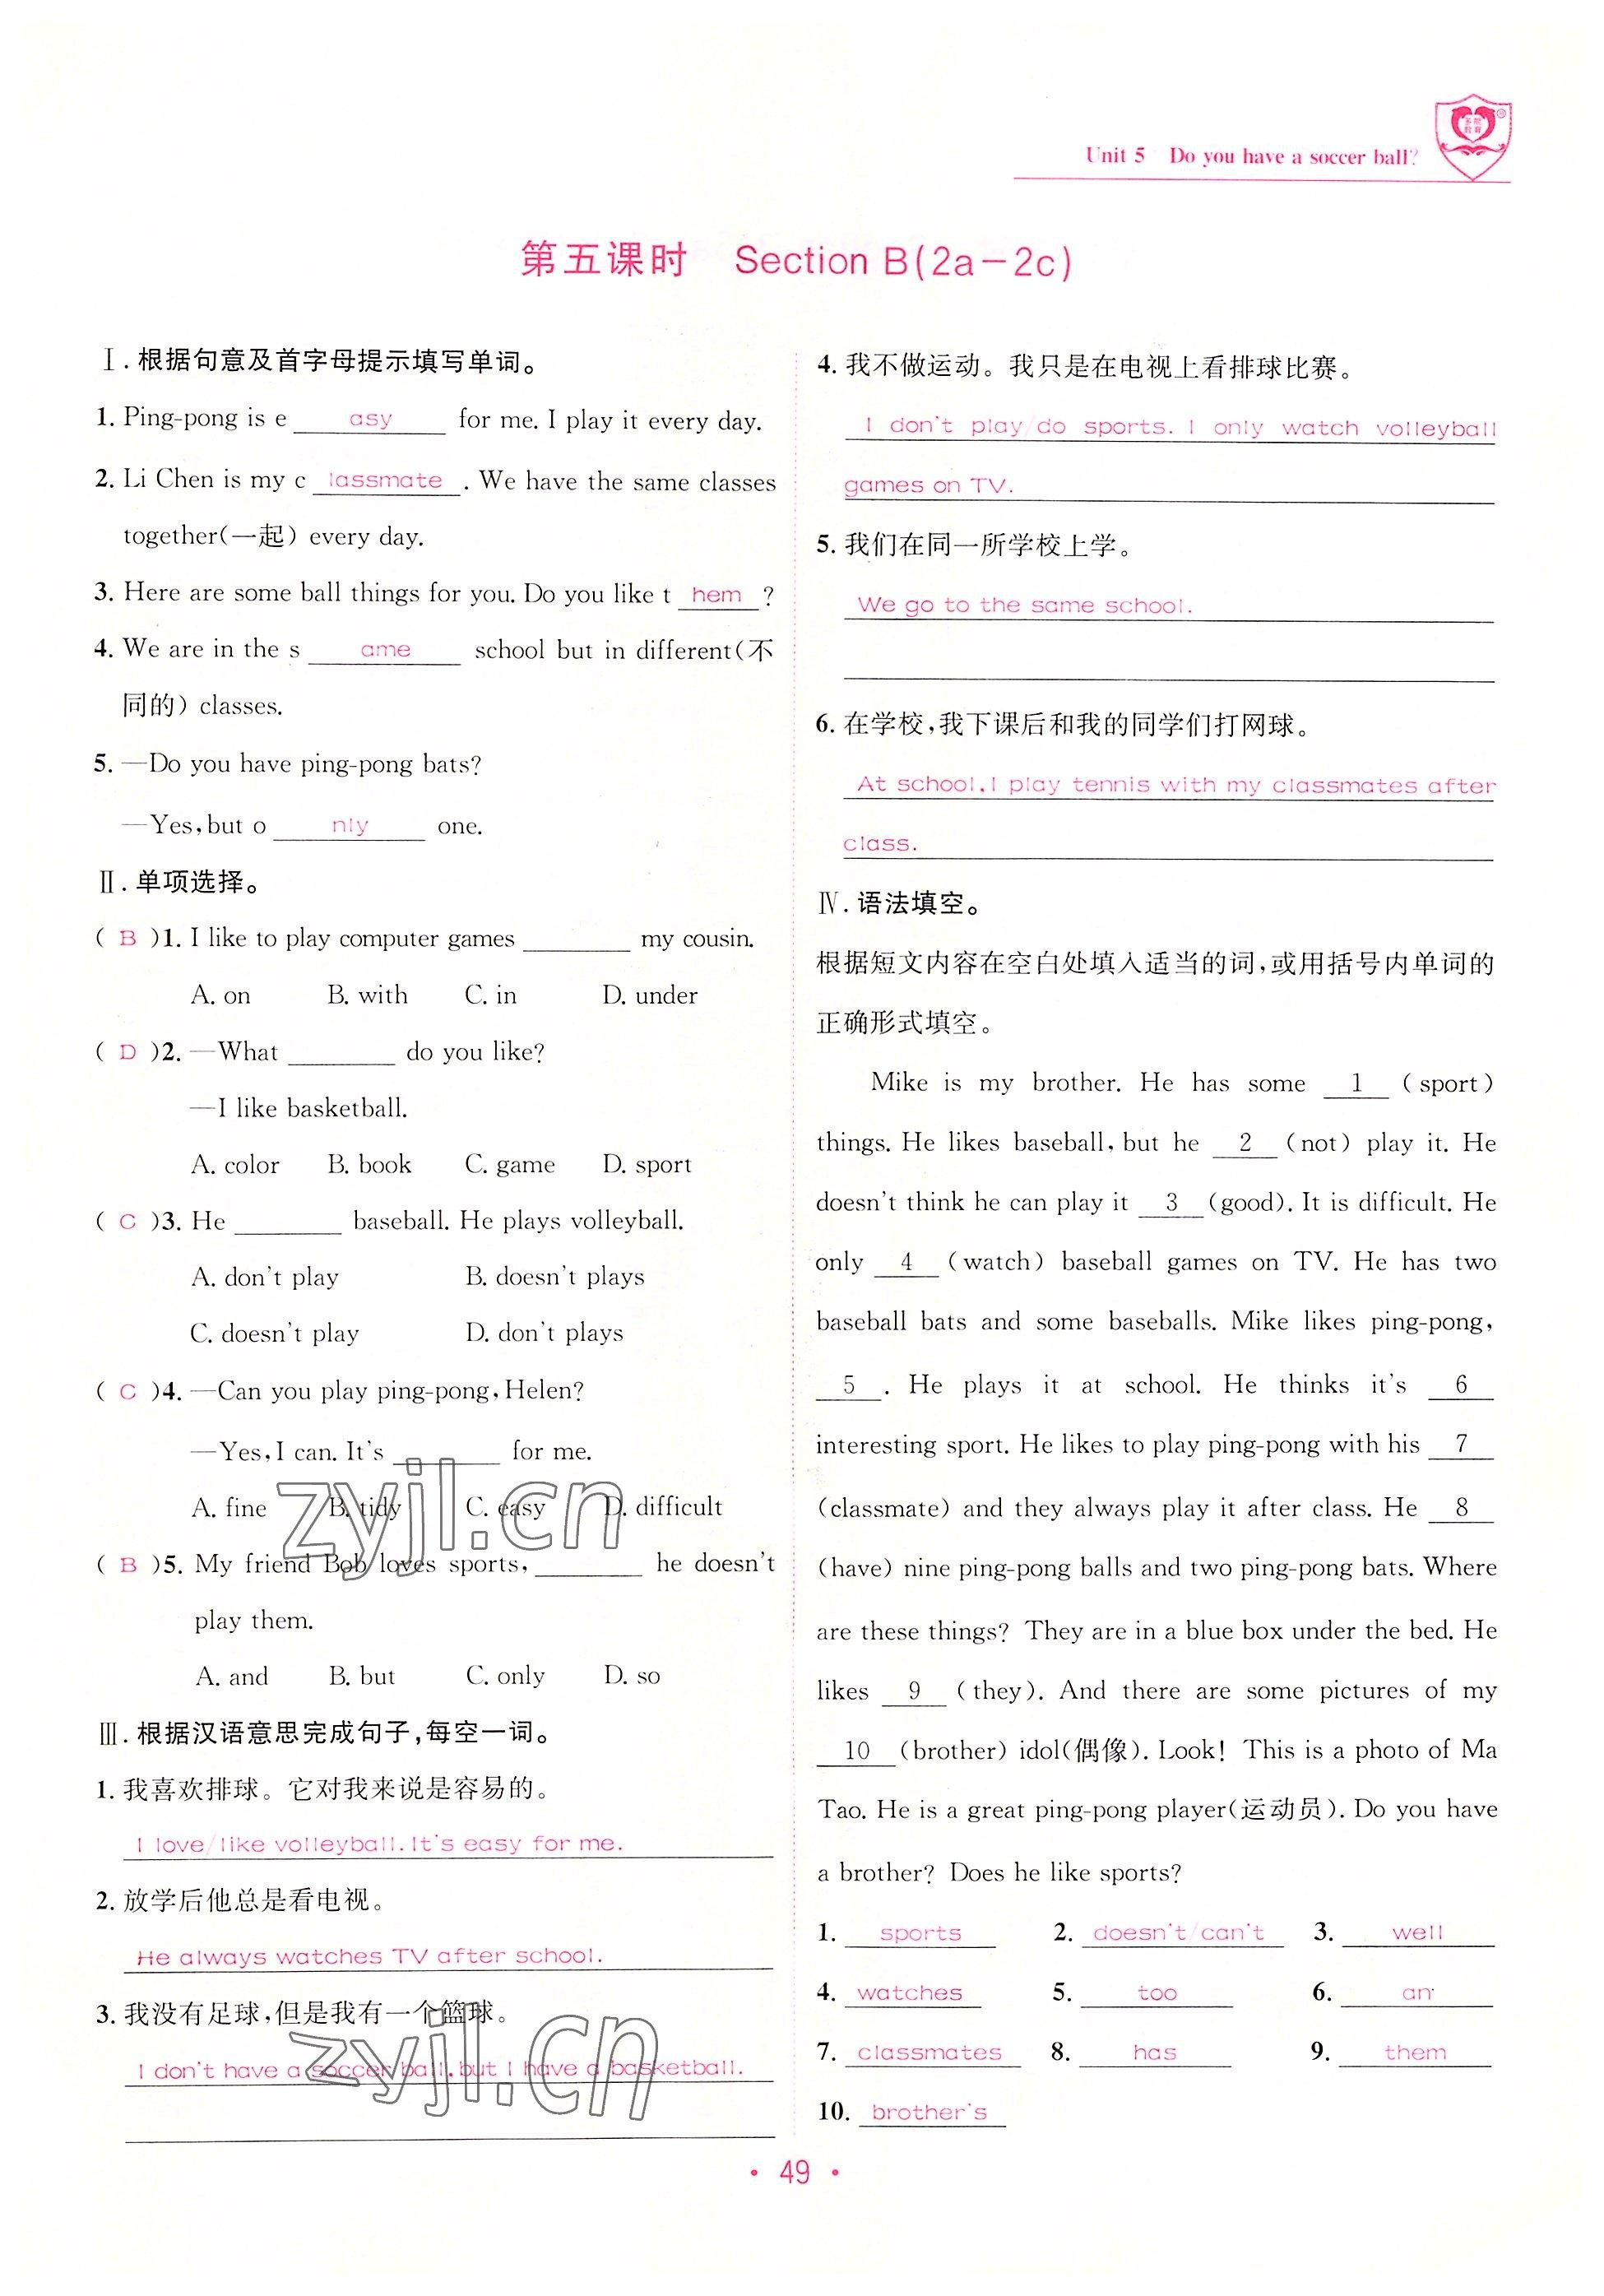 Unit 5 Do you have a soccer ball?
第五课时 Section B(2a－2c)
Ⅰ.根据句意及首字母提示填写单词。
1. Ping-pong is e asy for me. I play it every day.
2. Li Chen is my c lassmate . We have the same classes
together(一起) every day.
3. Here are some ball things for you. Do you like t hem ?
4. We are in the s ame school but in different(不
同的) classes.
5. —Do you have ping-pong bats?
—Yes, but o nly one.
Ⅱ.单项选择。
( B )1. I like to play computer games ________ my cousin.
A. on B. with C. in D. under
( D )2. —What ________ do you like?
—I like basketball.
A. color B. book C. game D. sport
( C )3. He ________ baseball. He plays volleyball.
A. don't play B. doesn't plays
C. doesn't play D. don't plays
( C )4. —Can you play ping-pong, Helen?
—Yes, I can. It's ________ for me.
A. fine B. tidy C. easy D. difficult
( B )5. My friend Bob loves sports, ________ he doesn't
play them.
A. and B. but C. only D. so
Ⅲ.根据汉语意思完成句子,每空一词。
1. 我喜欢排球。它对我来说是容易的。
I love/like volleyball. It's easy for me.
2. 放学后他总是看电视。
He always watches TV after school.
3. 我没有足球,但是我有一个篮球。
I don't have a soccer ball, but I have a basketball.
4. 我不做运动。我只是在电视上看排球比赛。
I don't play/do sports. I only watch volleyball
games on TV.
5. 我们在同一所学校上学。
We go to the same school.
6. 在学校,我下课后和我的同学们打网球。
At school, I play tennis with my classmates after
class.
Ⅳ.语法填空。
根据短文内容在空白处填入适当的词,或用括号内单词的
正确形式填空。
Mike is my brother. He has some 1 (sport)
things. He likes baseball, but he 2 (not) play it. He
doesn't think he can play it 3 (good). It is difficult. He
only 4 (watch) baseball games on TV. He has two
baseball bats and some baseballs. Mike likes ping-pong,
5 . He plays it at school. He thinks it's 6
interesting sport. He likes to play ping-pong with his 7
(classmate) and they always play it after class. He 8
(have) nine ping-pong balls and two ping-pong bats. Where
are these things? They are in a blue box under the bed. He
likes 9 (they). And there are some pictures of my
10 (brother) idol(偶像). Look! This is a photo of Ma
Tao. He is a great ping-pong player(运动员). Do you have
a brother? Does he like sports?
1. sports 2. doesn't/can't 3. well
4. watches 5. too 6. an
7. classmates 8. has 9. them
10. brother's
· 49 ·
zyjl.cn
zyjl.cn